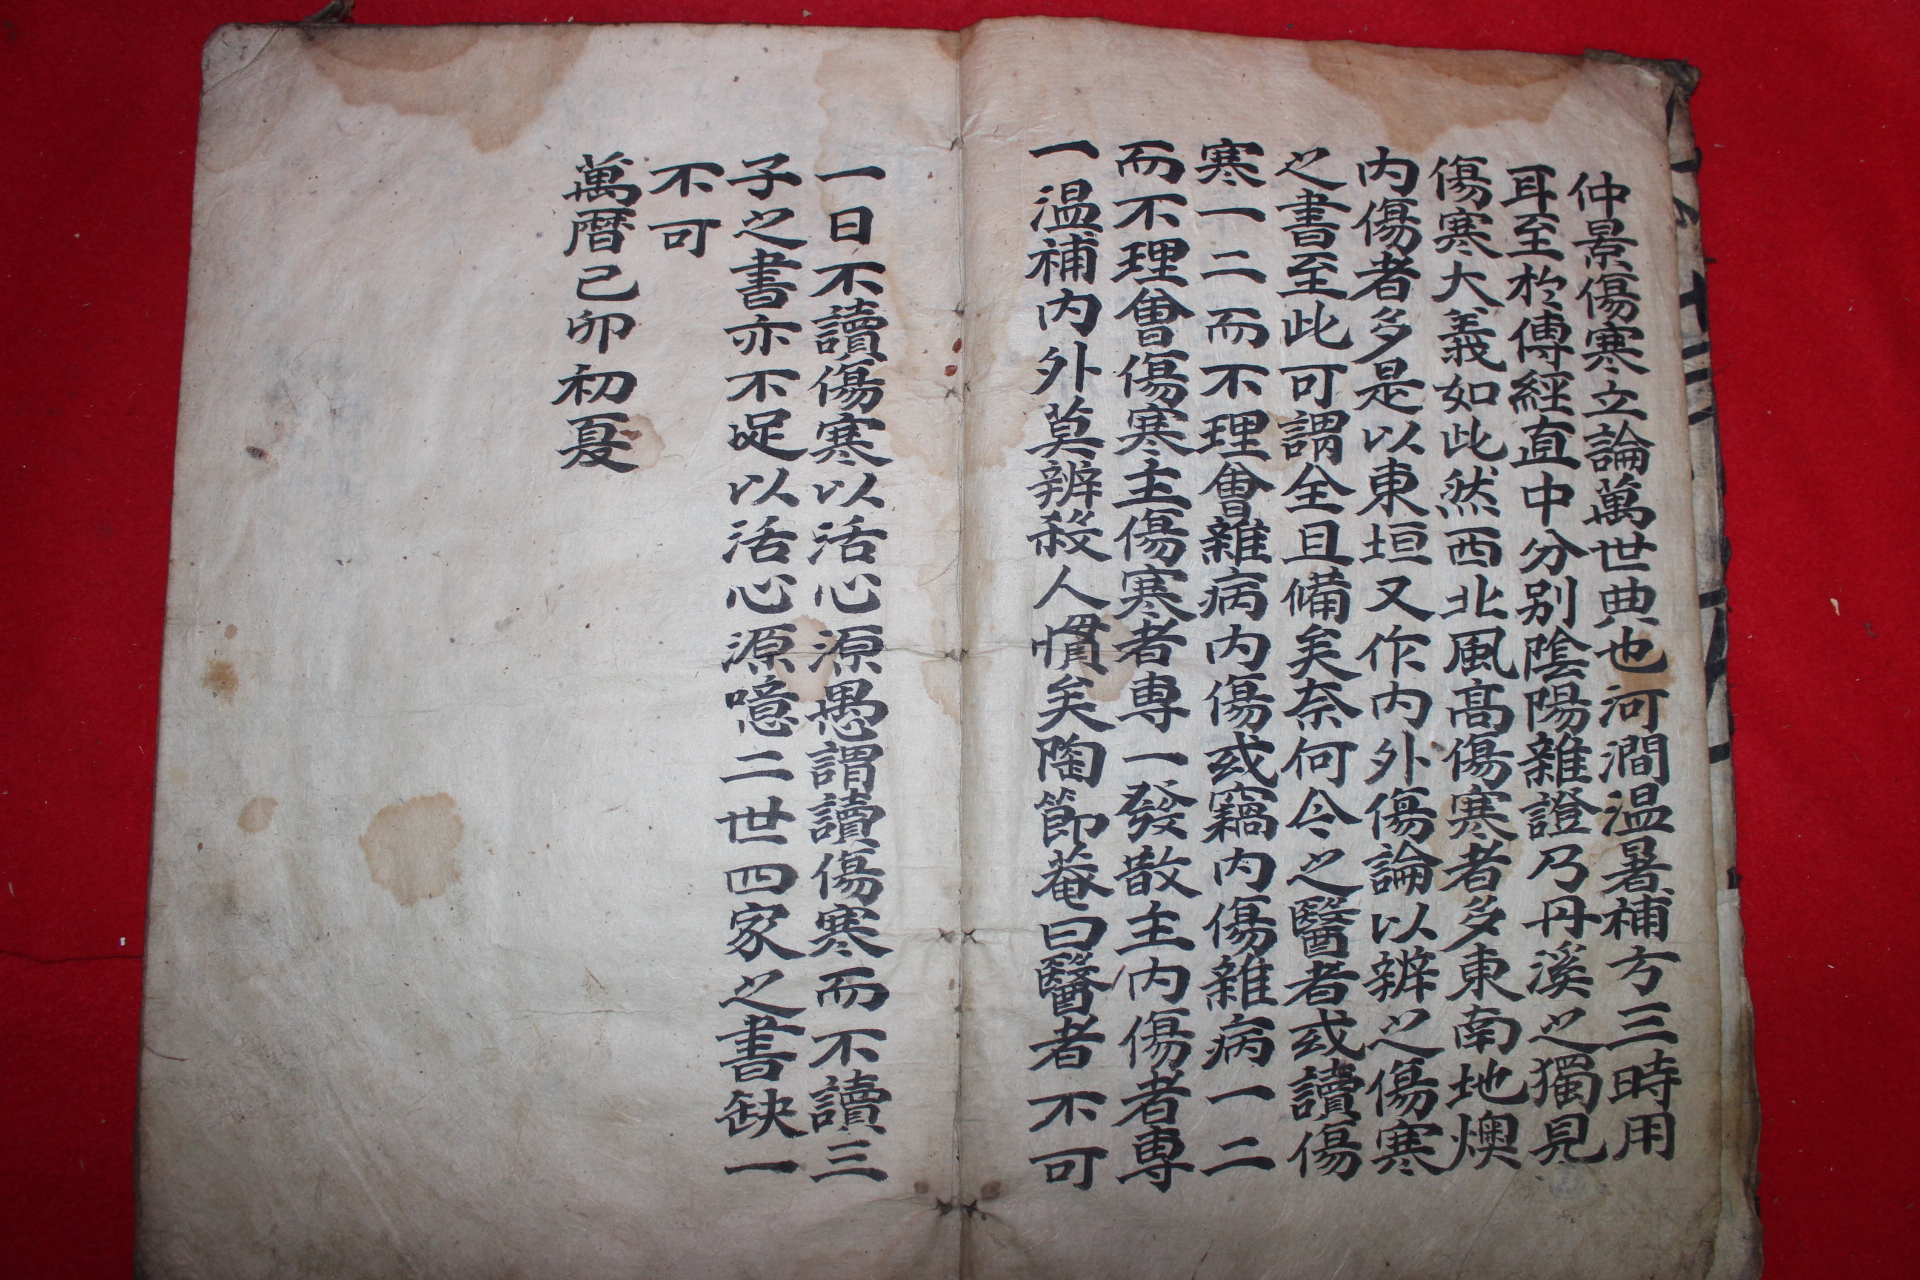 仲景傷寒立論萬世典也河澗温暑補方三時用
耳至於傅經直中分别陰陽雜證乃丹溪之獨見
傷寒大義如此然西北風高傷寒者多東南地燠
内傷者多是以東垣又作内外傷論以辨之傷寒
之書至此可謂全且備矣奈何今之醫者或讀傷
寒一二而不理會雜病内傷或竊内傷雜病一二
而不理會傷寒主傷寒者專一發散主内傷者專
一温補内外莫辨殺人慣矣陶節菴曰醫者不可
一日不讀傷寒以活心源愚謂讀傷寒而不讀三
子之書亦不足以活心源噫二世四家之書缺一
不可
萬曆己卯初夏